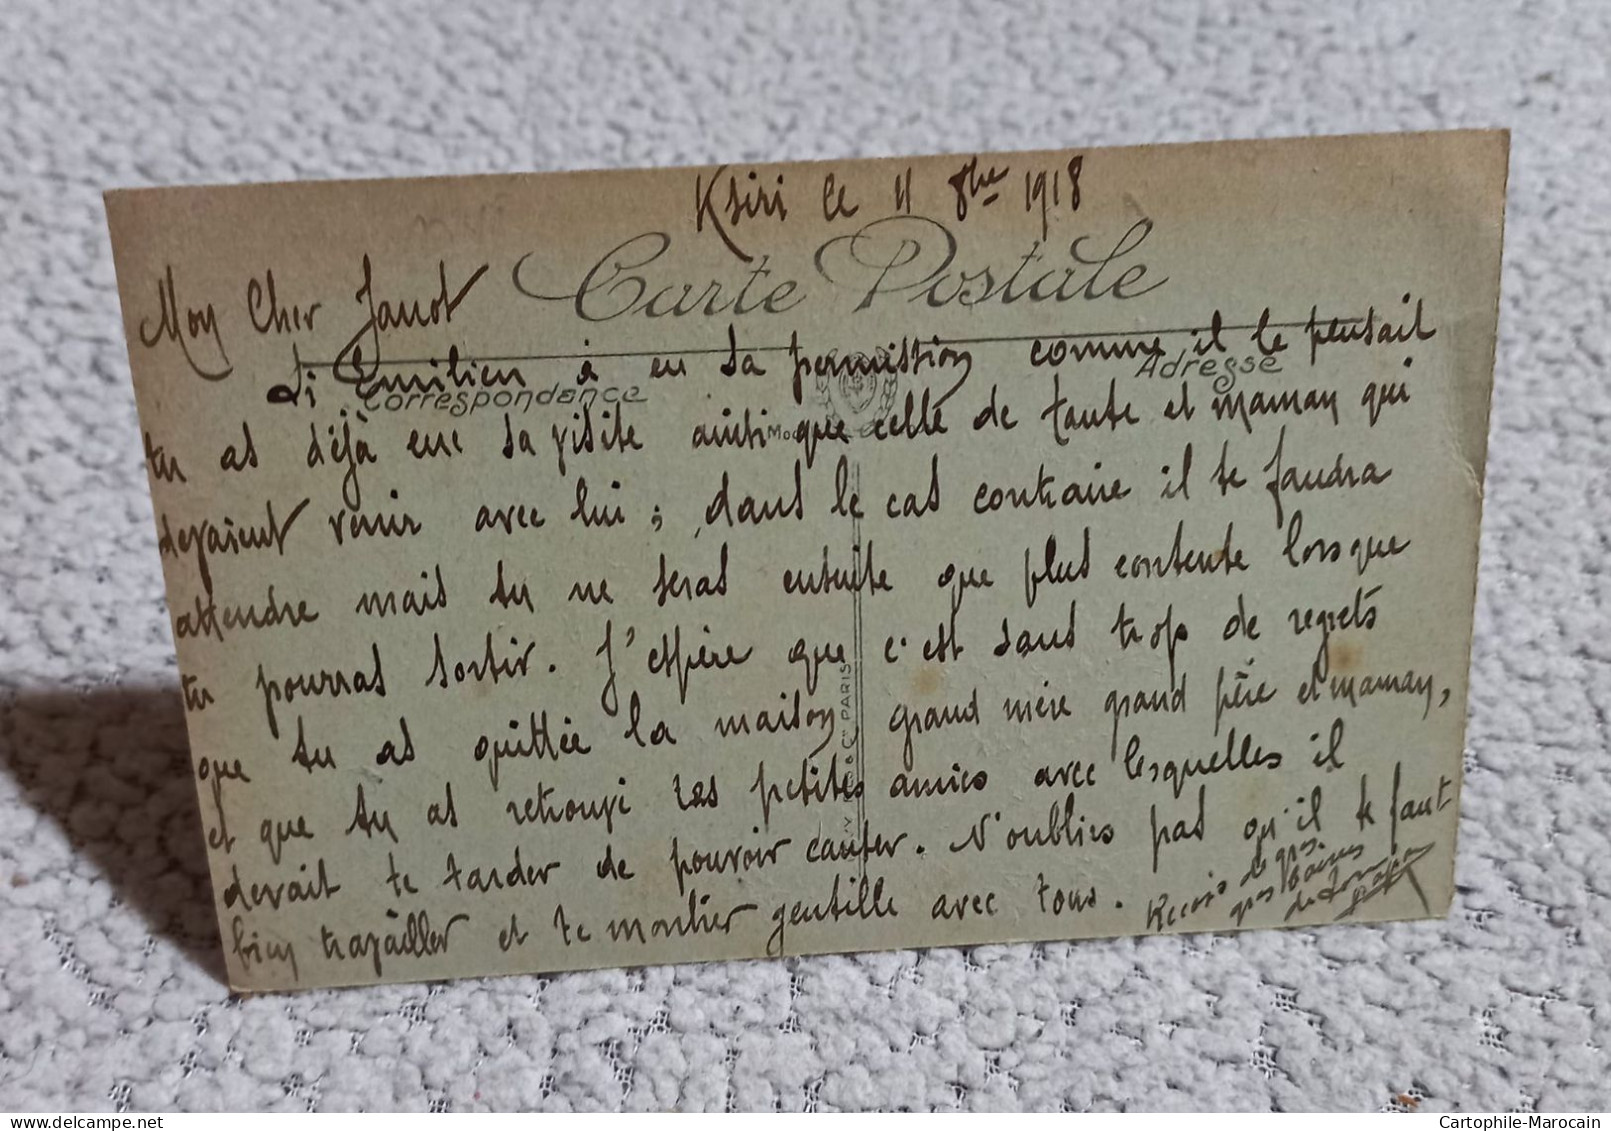 Ksiri le 11 8bre 1918
Carte Postale
Mon Cher Janot
Si Emilien à eu sa permission comme il le pensait
Correspondance
Adresse
tu as déjà eue sa visite ainsi que celle de tante et maman qui
devaient venir avec lui ; dans le cas contraire il te faudra
attendre mais tu ne seras ensuite que plus contente lorsque
tu pourras sortir. J'espère que c'est sans trop de regrets
que tu as quittée la maison grand mère grand père et maman,
et que tu as retrouvé tes petites amies avec lesquelles il
devait te tarder de pouvoir causer. N'oublies pas qu'il te faut
bien travailler et te montrer gentille avec tous.
Recois de gros
gros baisers
de ton papa
PARIS
Cartophile-Marocain